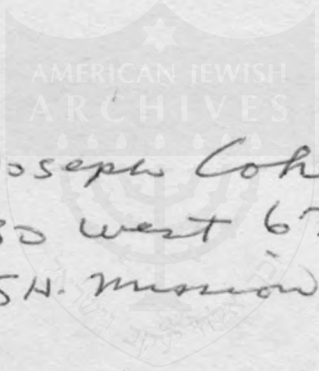 AMERICAN JEWISH
ARCHIVES
oseph Coh
30 West 67
SH. Mission